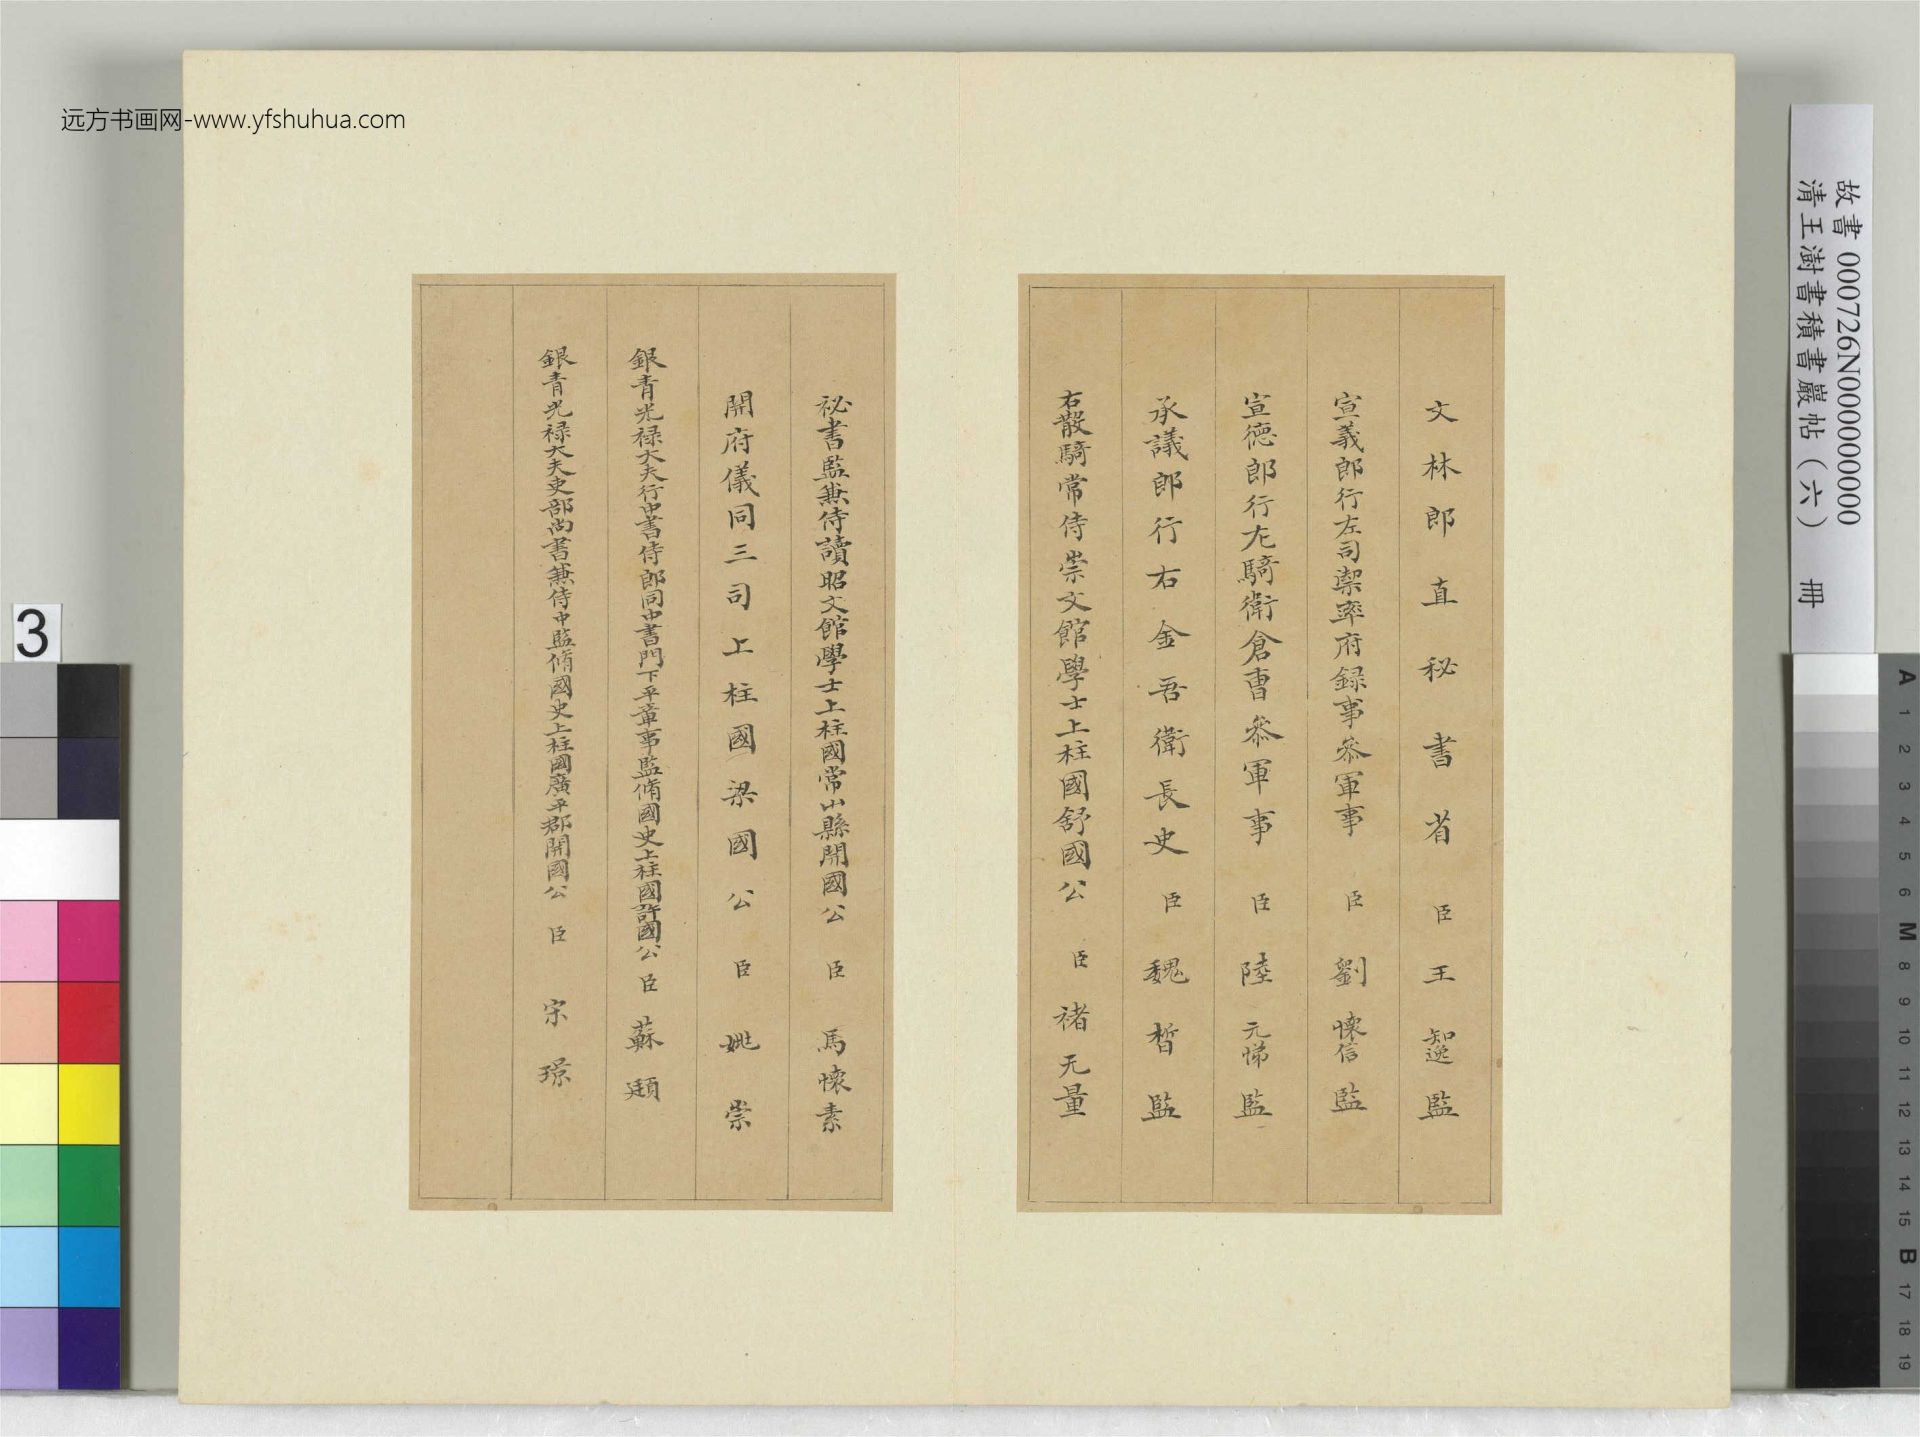 远方书画网-www.yfshuhua.com
故書 000726N000000000
清王澍書積書巖帖(六) 冊
文林郎直秘書省臣王知逸監
宣義郎行左司禦率府録事叅軍事臣劉懷信監
宣德郎行左騎衛倉曹叅軍事臣陸元悌監
承議郎行右金吾衛長史臣魏晳監
右散騎常侍崇文館學士上柱國舒國公臣褚无量
祕書監兼侍讀昭文館學士上柱國常山縣開國公臣馬懷素
開府儀同三司上柱國梁國公臣姚崇
銀青光禄大夫行中書侍郎同中書門下平章事監脩國史上柱國許國公臣蘇頲
銀青光禄大夫吏部尚書兼侍中監脩國史上柱國廣平郡開國公臣宋璟
3
A 1 2 3 4 5 6 M 8 9 10 11 12 13 14 15 B 17 18 19